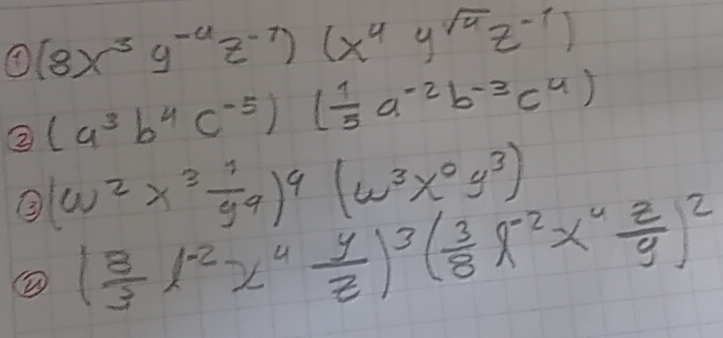 ① (8x³ y⁻⁴ z⁻¹) (x⁴ y^√4 z⁻¹)
② (a³ b⁴ c⁻⁵) (1/5 a⁻² b⁻³ c⁴)
③ (w² x³ 1/y⁹)⁹ (w³ x⁰ y³)
④ (8/3 l⁻² x⁴ y/z)³ (3/8 l⁻² x⁴ z/y)²